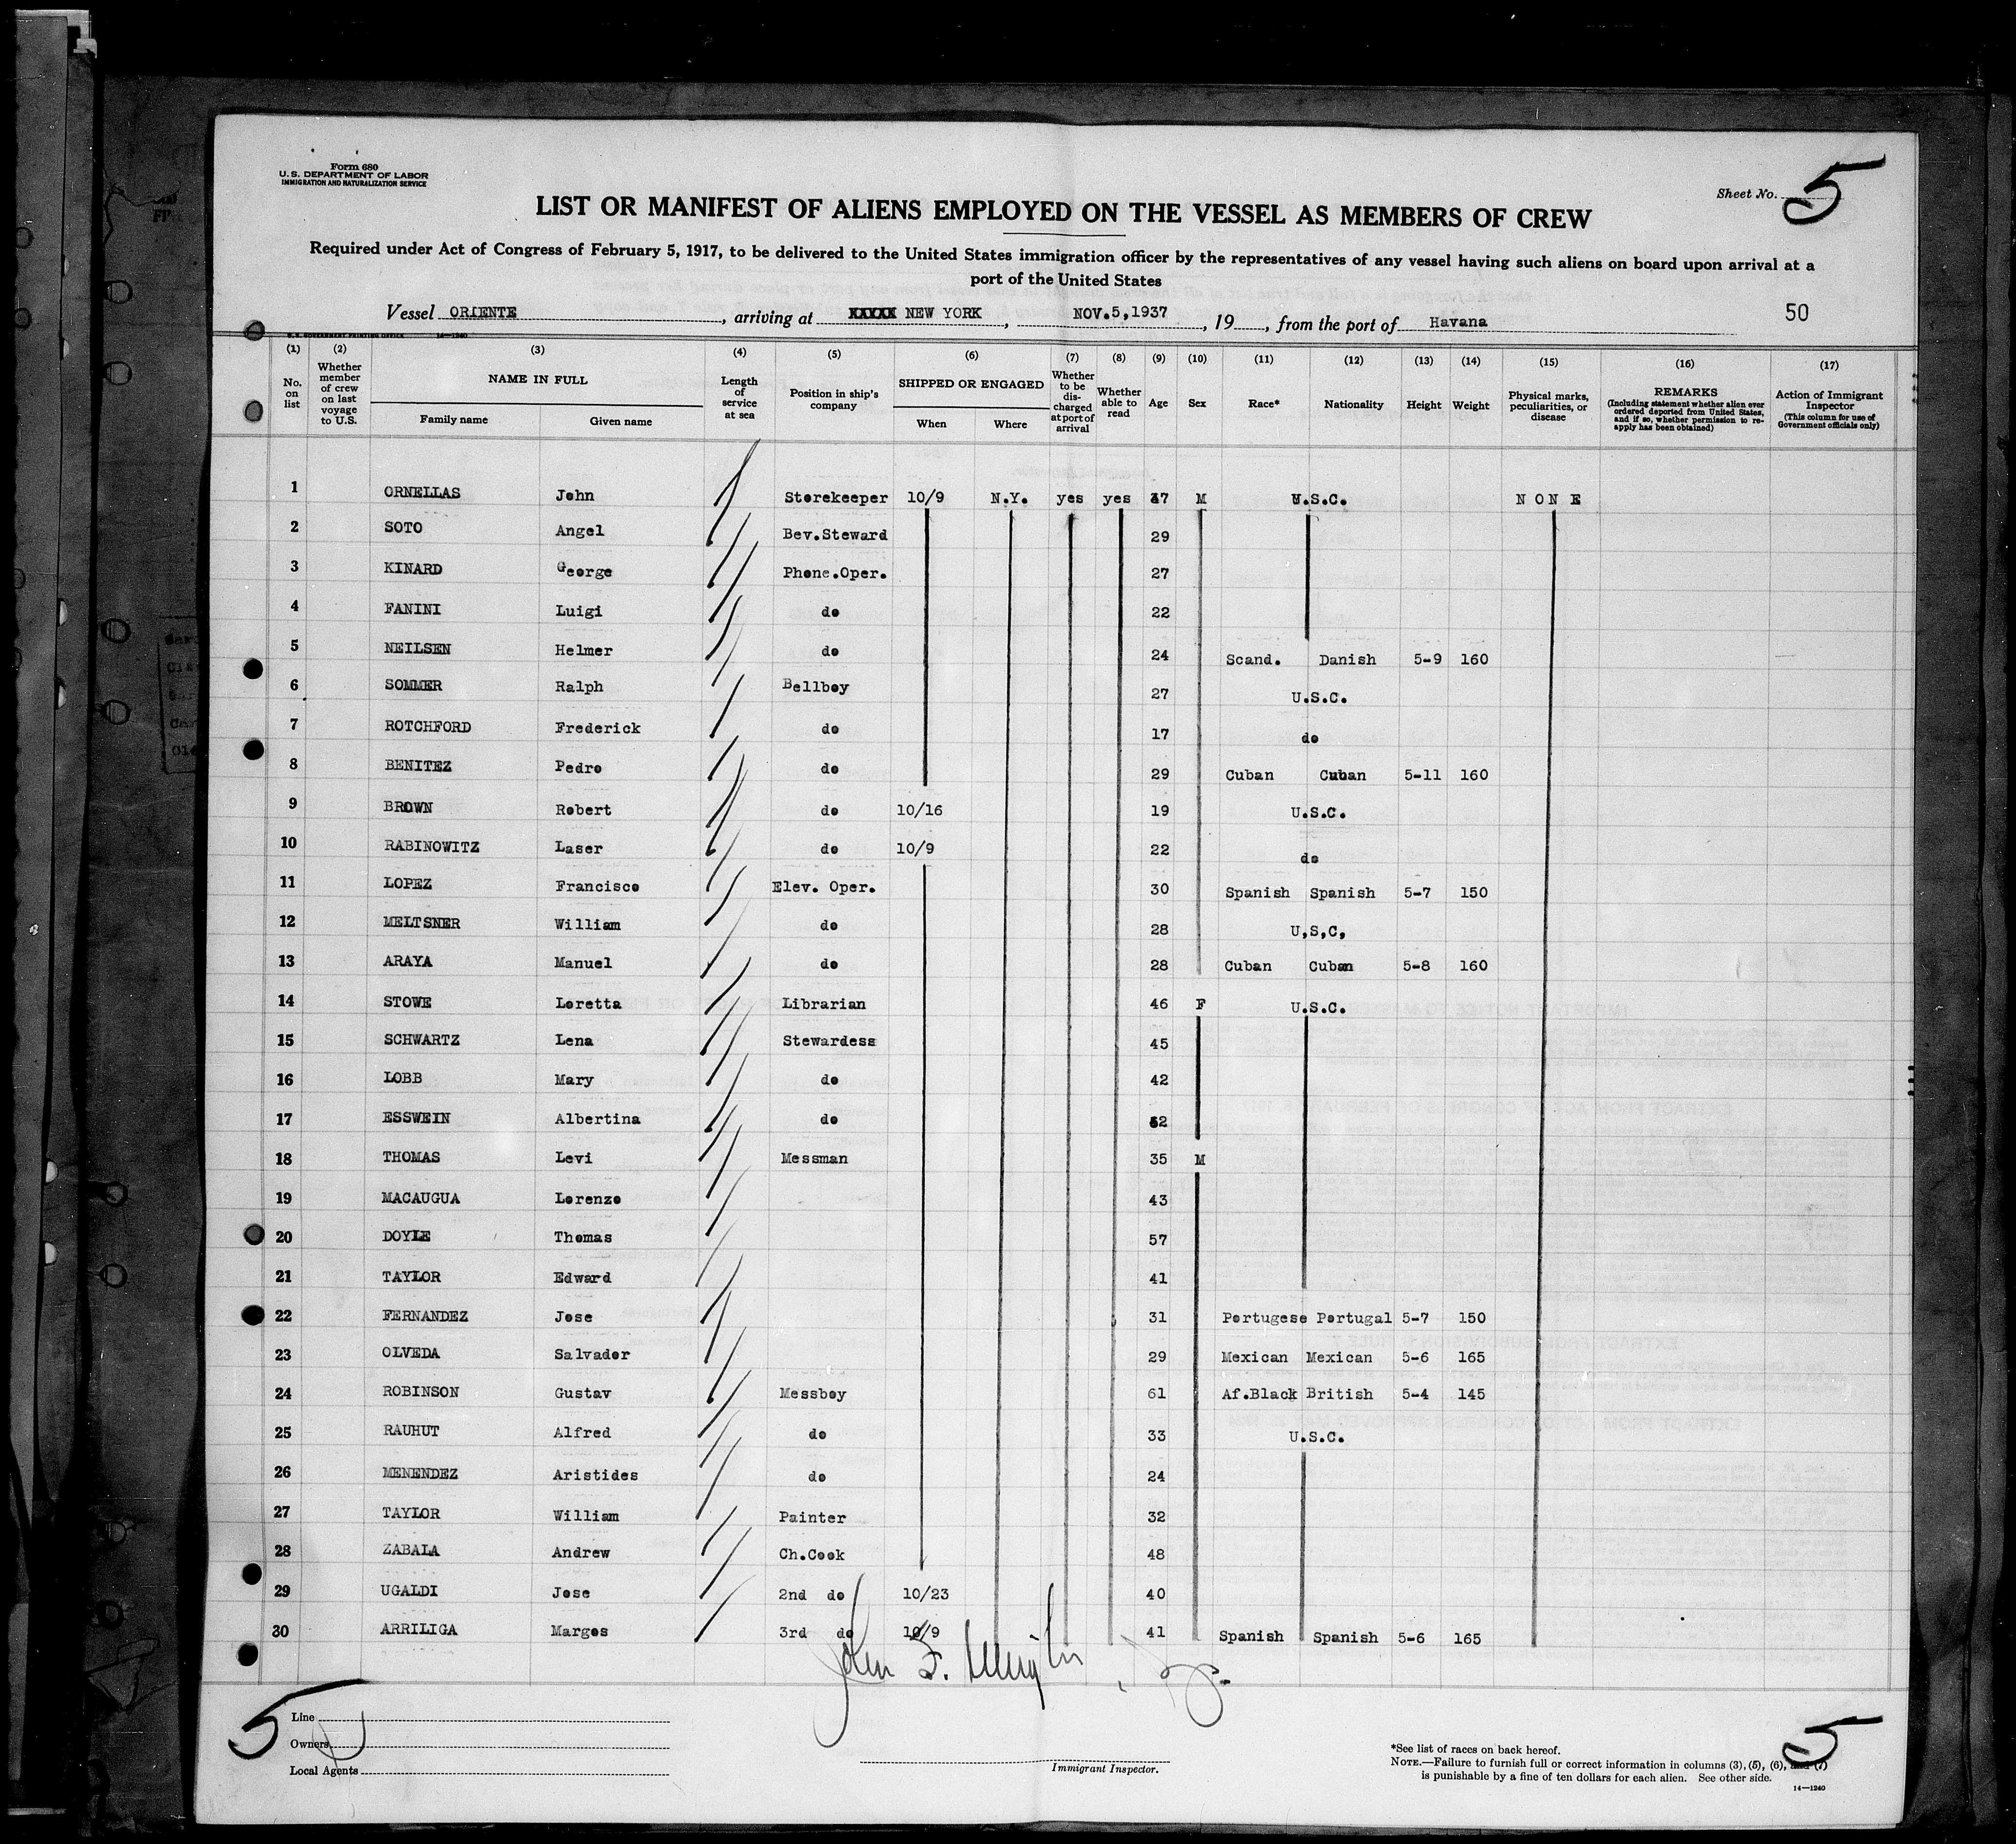 Form 680
U. S. DEPARTMENT OF LABOR
IMMIGRATION AND NATURALIZATION SERVICE
Sheet No. 5
LIST OR MANIFEST OF ALIENS EMPLOYED ON THE VESSEL AS MEMBERS OF CREW
Required under Act of Congress of February 5, 1917, to be delivered to the United States immigration officer by the representatives of any vessel having such aliens on board upon arrival at a
port of the United States
Vessel ORIENTE, arriving at XXXXX NEW YORK, NOV.5,1937, 19, from the port of Havana 50
U.S. GOVERNMENT PRINTING OFFICE 14—1240
(1) (2) (3) (4) (5) (6) (7) (8) (9) (10) (11) (12) (13) (14) (15) (16) (17)
No. on list
Whether member of crew on last voyage to U.S.
NAME IN FULL
Family name Given name
Length of service at sea
Position in ship's company
SHIPPED OR ENGAGED
When Where
Whether to be discharged at port of arrival
Whether able to read
Age Sex Race* Nationality Height Weight
Physical marks, peculiarities, or disease
REMARKS
(Including statement whether alien ever ordered deported from United States, and if so, whether permission to re-apply has been obtained)
Action of Immigrant Inspector
(This column for use of Government officials only)
1 ORNELLAS John Storekeeper 10/9 N.Y. yes yes 47 M U.S.C. NONE
2 SOTO Angel Bev.Steward 29
3 KINARD George Phone.Oper. 27
4 FANINI Luigi do 22
5 NEILSEN Helmer do 24 Scand. Danish 5-9 160
6 SOMMER Ralph Bellboy 27 U.S.C.
7 ROTCHFORD Frederick do 17 do
8 BENITEZ Pedro do 29 Cuban Cuban 5-11 160
9 BROWN Robert do 10/16 19 U.S.C.
10 RABINOWITZ Laser do 10/9 22 do
11 LOPEZ Francisco Elev. Oper. 30 Spanish Spanish 5-7 150
12 MELTSNER William do 28 U,S,C,
13 ARAYA Manuel do 28 Cuban Cuban 5-8 160
14 STOWE Loretta Librarian 46 F U.S.C.
15 SCHWARTZ Lena Stewardess 45
16 LOBB Mary do 42
17 ESSWEIN Albertina do 52
18 THOMAS Levi Messman 35 M
19 MACAUGUA Lorenzo 43
20 DOYLE Thomas 57
21 TAYLOR Edward 41
22 FERNANDEZ Jose 31 Portugese Portugal 5-7 150
23 OLVEDA Salvador 29 Mexican Mexican 5-6 165
24 ROBINSON Gustav Messboy 61 Af.Black British 5-4 145
25 RAUHUT Alfred do 33 U.S.C.
26 MENENDEZ Aristides do 24
27 TAYLOR William Painter 32
28 ZABALA Andrew Ch.Cook 48
29 UGALDI Jose 2nd do 10/23 40
30 ARRILIGA Marges 3rd do 10/9 41 Spanish Spanish 5-6 165
John F.
5
Line
Owners
Local Agents
Immigrant Inspector.
*See list of races on back hereof.
NOTE.—Failure to furnish full or correct information in columns (3), (5), (6), and (7)
is punishable by a fine of ten dollars for each alien. See other side.
14—1240
5